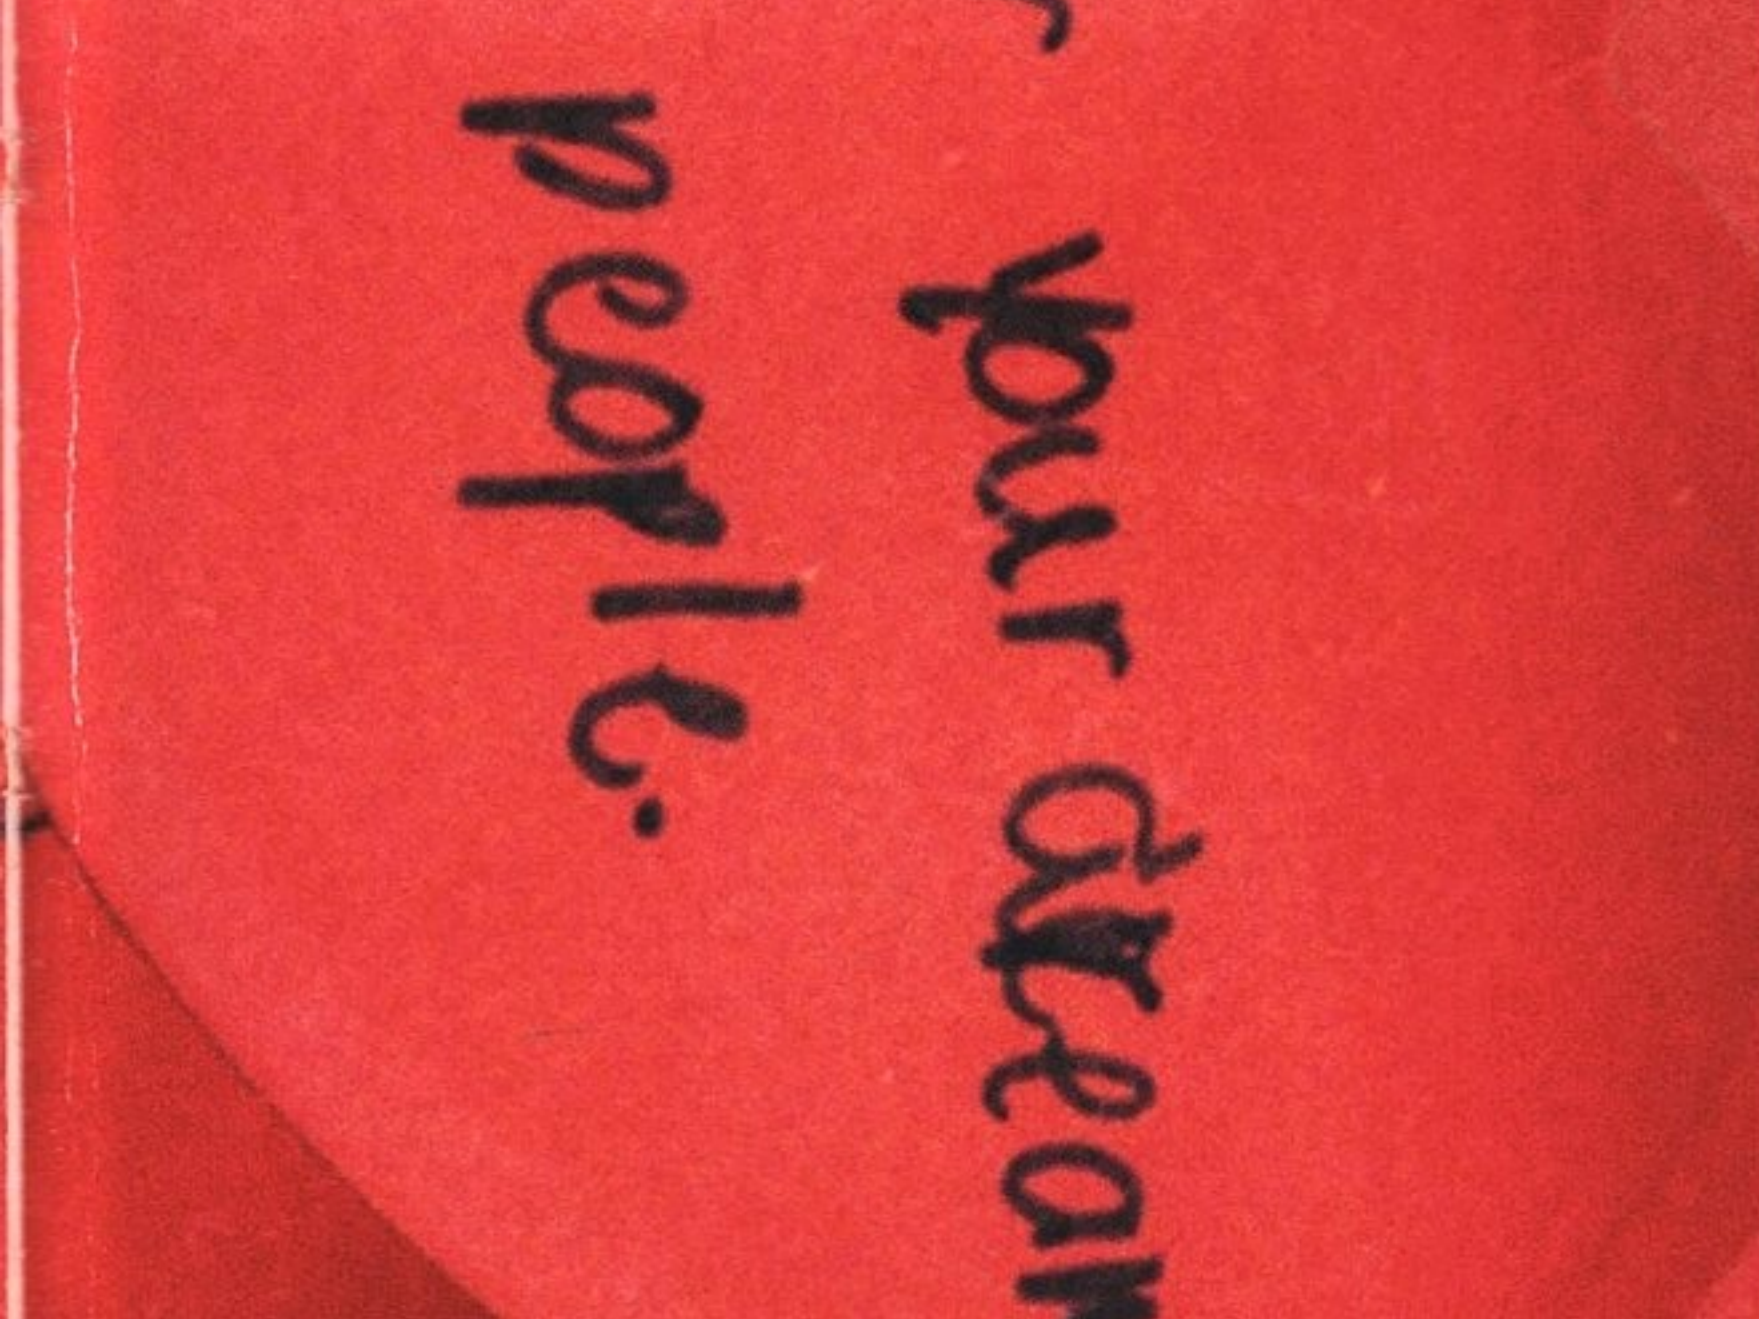 your dream
people.